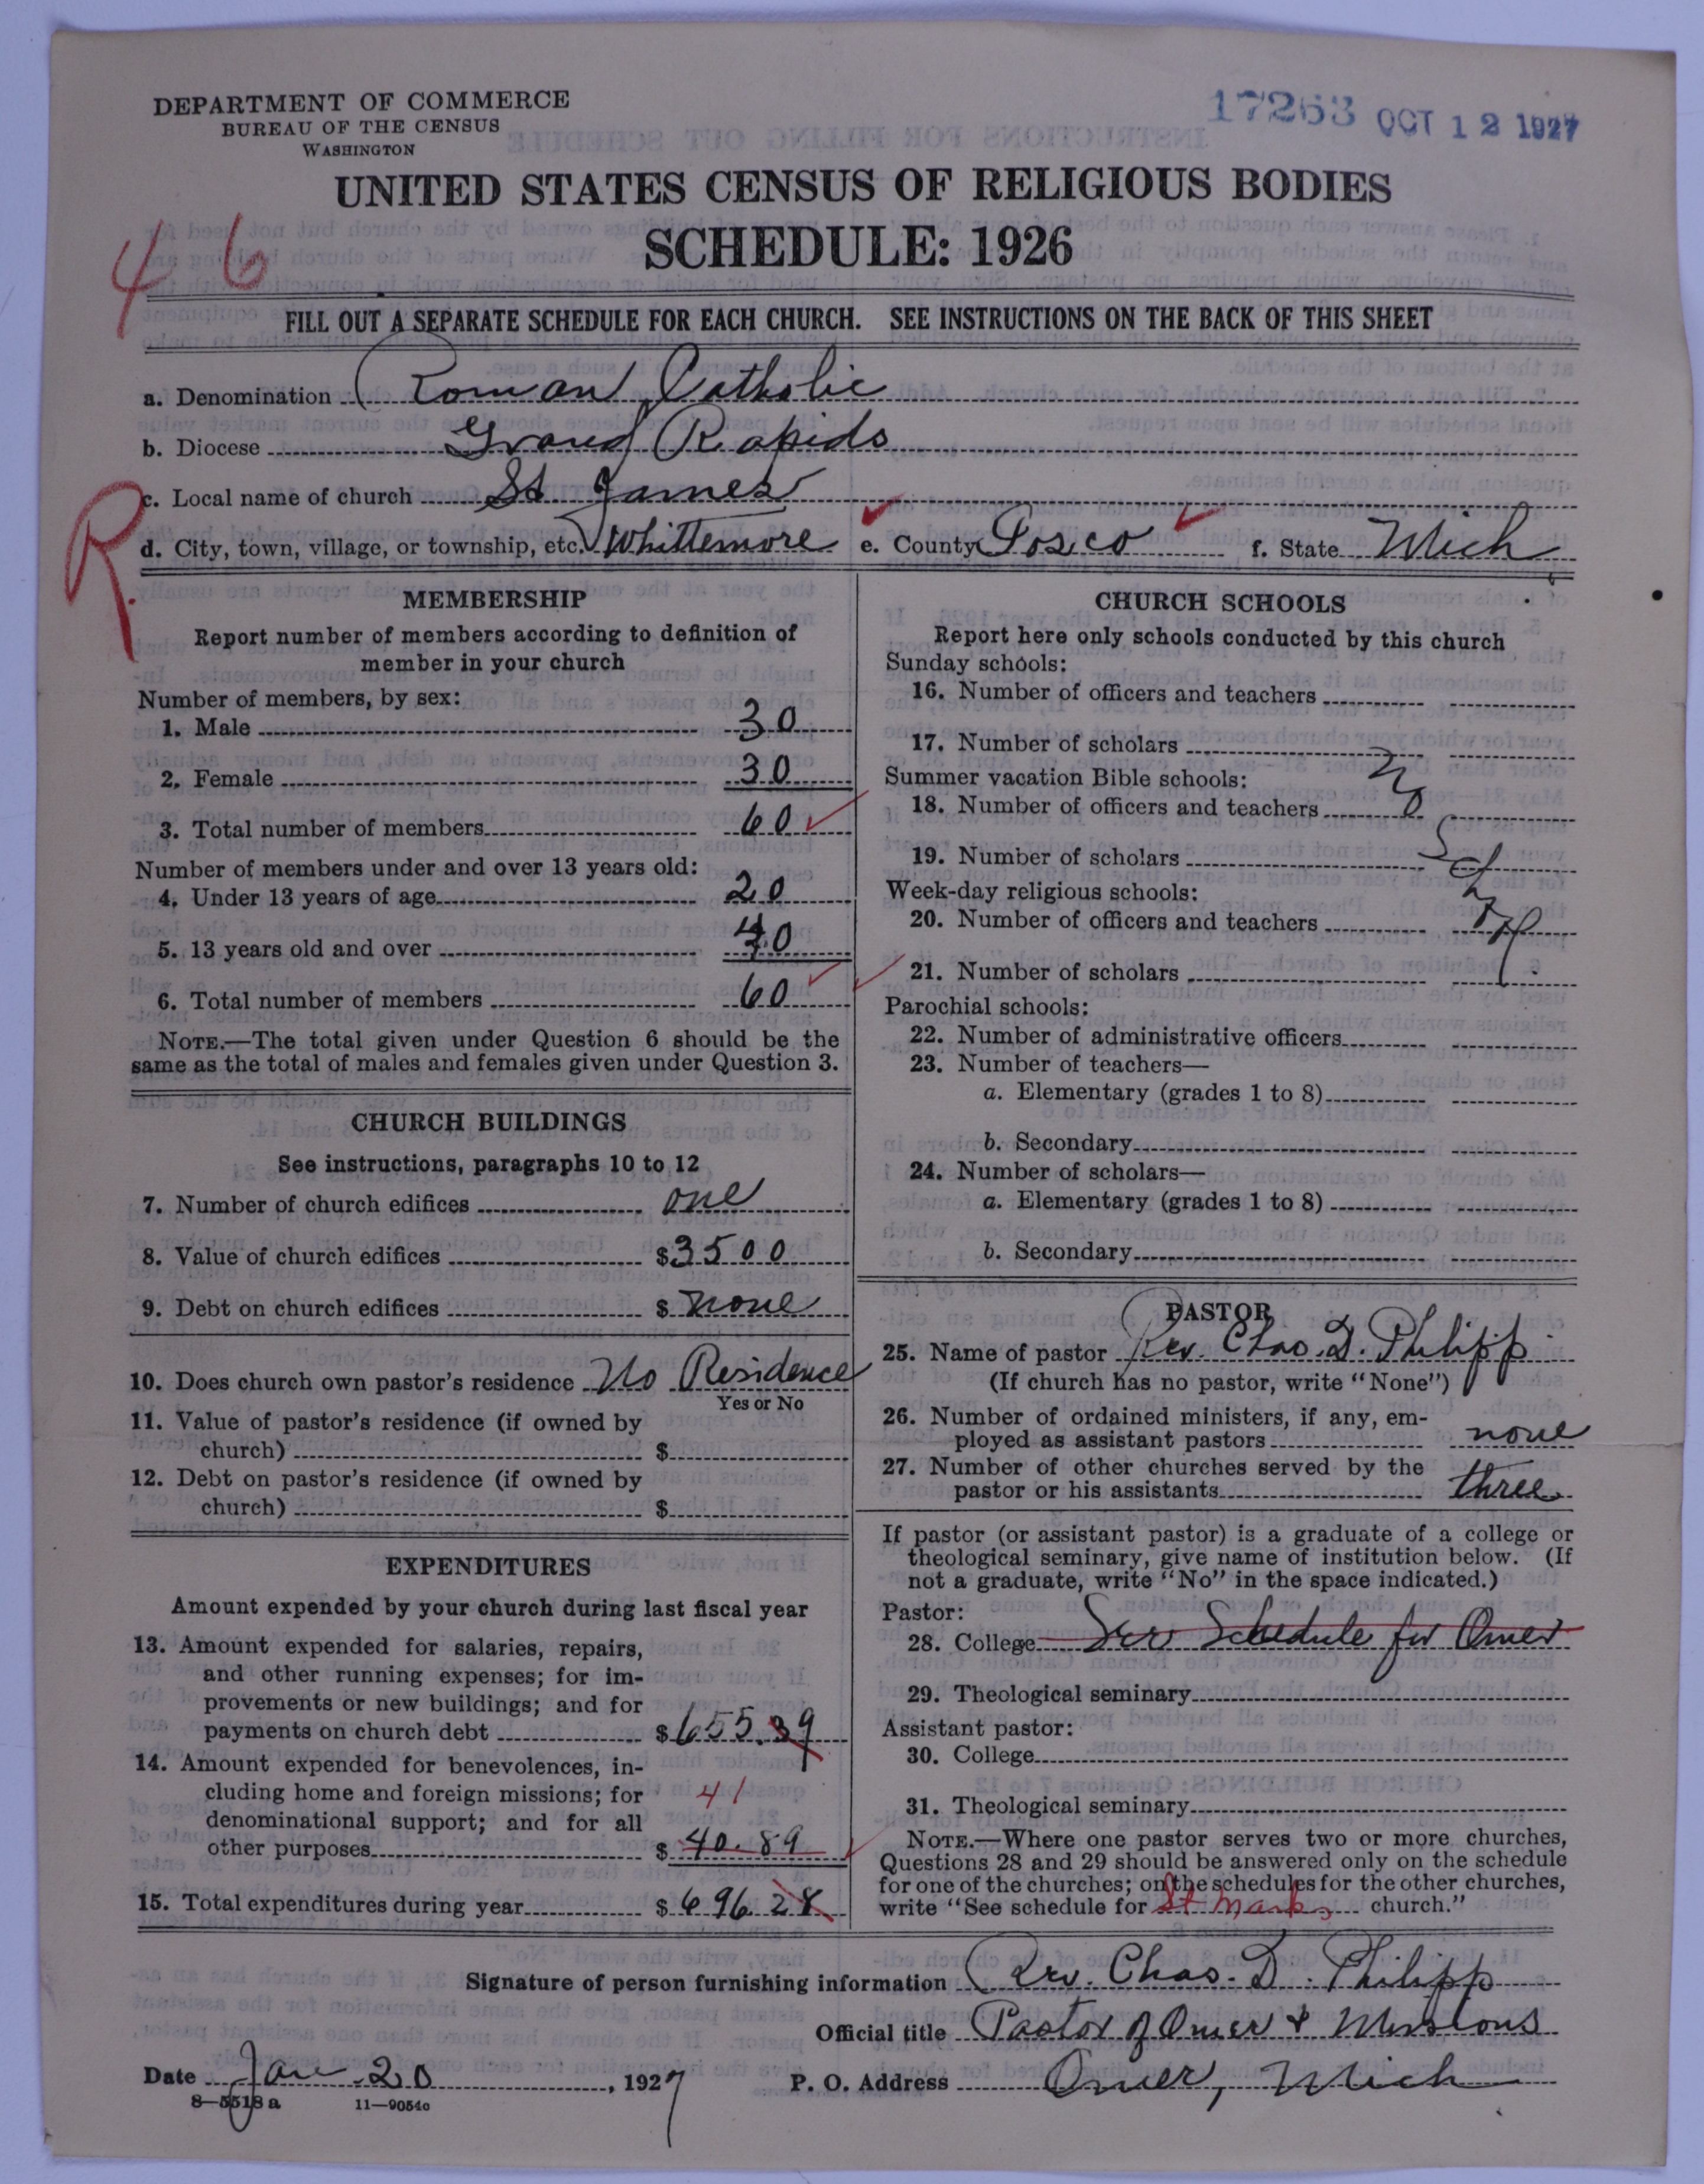 DEPARTMENT OF COMMERCE
BUREAU OF THE CENSUS
WASHINGTON
17263 OCT 12 1927
UNITED STATES CENSUS OF RELIGIOUS BODIES
SCHEDULE: 1926
4 6
FILL OUT A SEPARATE SCHEDULE FOR EACH CHURCH. SEE INSTRUCTIONS ON THE BACK OF THIS SHEET
a. Denomination Roman Catholic
b. Diocese Grand Rapids
c. Local name of church St James
R
d. City, town, village, or township, etc. Whittemore e. County Iosco f. State Mich
MEMBERSHIP
Report number of members according to definition of
member in your church
Number of members, by sex:
1. Male 30
2. Female 30
3. Total number of members 60
Number of members under and over 13 years old:
4. Under 13 years of age 20
5. 13 years old and over 40
6. Total number of members 60
NOTE.—The total given under Question 6 should be the
same as the total of males and females given under Question 3.
CHURCH BUILDINGS
See instructions, paragraphs 10 to 12
7. Number of church edifices one
8. Value of church edifices $3500
9. Debt on church edifices $ none
10. Does church own pastor's residence No Residence
Yes or No
11. Value of pastor's residence (if owned by
church) $
12. Debt on pastor's residence (if owned by
church) $
EXPENDITURES
Amount expended by your church during last fiscal year
13. Amount expended for salaries, repairs,
and other running expenses; for im-
provements or new buildings; and for
payments on church debt $655.39
14. Amount expended for benevolences, in-
cluding home and foreign missions; for 41
denominational support; and for all
other purposes $ 40.89
15. Total expenditures during year $ 696 28
CHURCH SCHOOLS
Report here only schools conducted by this church
Sunday schools:
16. Number of officers and teachers
17. Number of scholars
Summer vacation Bible schools:
18. Number of officers and teachers No
19. Number of scholars
Week-day religious schools:
20. Number of officers and teachers
21. Number of scholars
Parochial schools:
22. Number of administrative officers
23. Number of teachers—
a. Elementary (grades 1 to 8)
b. Secondary
24. Number of scholars—
a. Elementary (grades 1 to 8)
b. Secondary
PASTOR
25. Name of pastor Rev. Chas. D. Philipp
(If church has no pastor, write "None")
26. Number of ordained ministers, if any, em-
ployed as assistant pastors none
27. Number of other churches served by the
pastor or his assistants three
If pastor (or assistant pastor) is a graduate of a college or
theological seminary, give name of institution below. (If
not a graduate, write "No" in the space indicated.)
Pastor:
28. College See Schedule for Omer
29. Theological seminary
Assistant pastor:
30. College
31. Theological seminary
NOTE.—Where one pastor serves two or more churches,
Questions 28 and 29 should be answered only on the schedule
for one of the churches; on the schedules for the other churches,
write "See schedule for St Marks church."
Signature of person furnishing information Rev. Chas. D. Philipp
Official title Pastor of Omer & Missions
Date Jan 20, 1927 P. O. Address Omer, Mich
8—5518 a 11—9054c